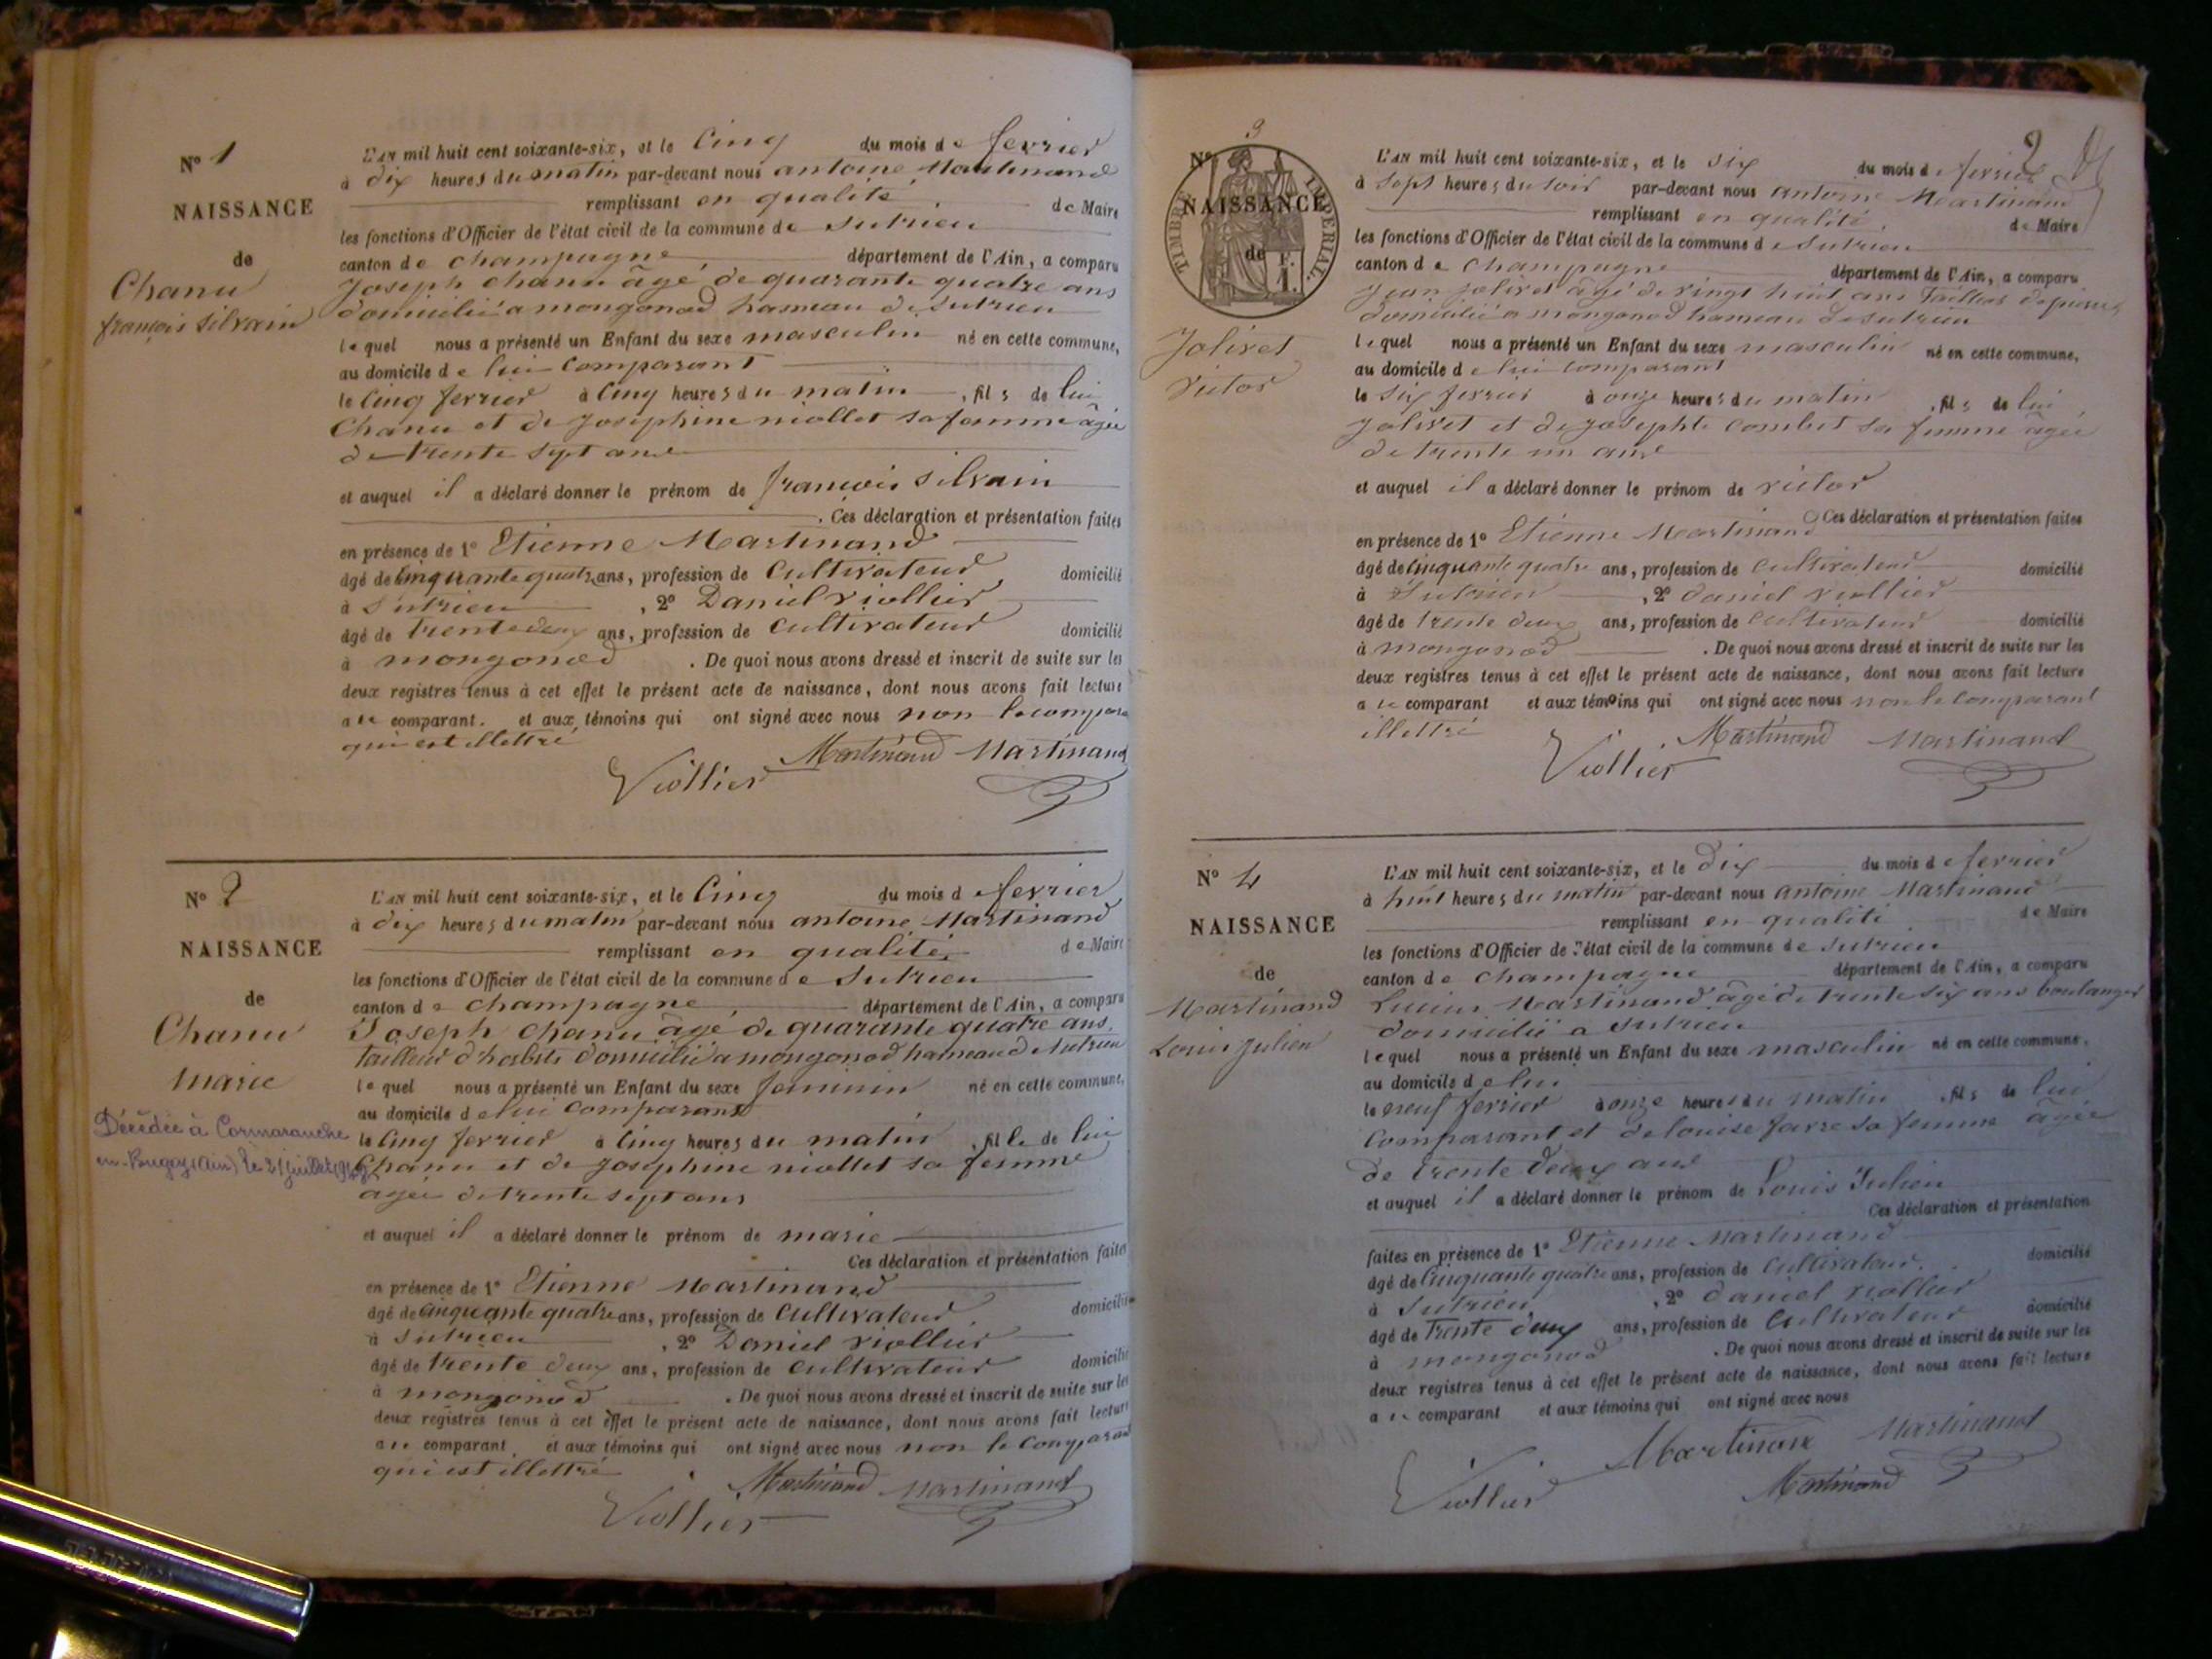 N° 1
NAISSANCE
de
Chanu
françois Silvain
L'AN mil huit cent soixante-six, et le Cinq du mois de fevrier
à dix heures du matin par-devant nous antoine Martinand
remplissant en qualité de Maire
les fonctions d'Officier de l'état civil de la commune de Sutrieu
canton de Champagne, département de l'Ain, a comparu
Joseph Chanu âgé de quarante quatre ans
domicilié a mongonod hameau de Sutrieu
lequel nous a présenté un Enfant du sexe masculin né en cette commune,
au domicile de lui Comparant
le Cinq fevrier à Cinq heures du matin, fils de lui
Chanu et de Josephine niollet sa femme âgée
de trente sept ans
et auquel il a déclaré donner le prénom de françois Silvain
. Ces déclaration et présentation faites
en présence de 1° Etienne Martinand
âgé de Cinquante quatre ans, profession de Cultivateur domicilié
à Sutrieu, 2° Daniel Viollier
âgé de trente deux ans, profession de Cultivateur domicilié
à mongonod. De quoi nous avons dressé et inscrit de suite sur les
deux registres tenus à cet effet le présent acte de naissance, dont nous avons fait lecture
au comparant. et aux témoins qui ont signé avec nous non le compara
qui est illettré
Viollier Martinand Martinand
N° 2
NAISSANCE
de
Chanu
Marie
Décédée à Cormaranche
en-Bugey (Ain) le 21 juillet
L'AN mil huit cent soixante-six, et le Cinq du mois de fevrier
à dix heures du matin par-devant nous antoine Martinand
remplissant en qualité de Maire
les fonctions d'Officier de l'état civil de la commune de Sutrieu
canton de Champagne, département de l'Ain, a comparu
Joseph Chanu âgé de quarante quatre ans,
tailleur d'habits domicilié a mongonod hameau d Sutrieu
lequel nous a présenté un Enfant du sexe feminin né en cette commune,
au domicile de lui comparant
le Cinq fevrier à Cinq heures du matin, fille de lui
Chanu et de Josephine niollet sa femme
agée de trente sept ans
et auquel il a déclaré donner le prénom de marie
Ces déclaration et présentation faites
en présence de 1° Etienne Martinand
âgé de Cinquante quatre ans, profession de Cultivateur domicilié
à Sutrieu, 2° Daniel Viollier
âgé de trente deux ans, profession de Cultivateur domicilié
à mongonod. De quoi nous avons dressé et inscrit de suite sur les
deux registres tenus à cet effet le présent acte de naissance, dont nous avons fait lecture
au comparant, et aux témoins qui ont signé avec nous non le Comparant
qui est illettré
Viollier Martinand Martinand
2
N° 3
NAISSANCE
de
TIMBRE IMPERIAL.
F. 1.
Jolivet
Victor
L'AN mil huit cent soixante-six, et le Six du mois de fevrier
à Sept heures du soir par-devant nous antoine Martinand
remplissant en qualité de Maire
les fonctions d'Officier de l'état civil de la commune de Sutrieu
canton de Champagne département de l'Ain, a comparu
Jean Jolivet âgé de vingt huit ans Tailleur de pierres
domicilié a mongonod hameau de Sutrieu
lequel nous a présenté un Enfant du sexe masculin né en cette commune,
au domicile de lui comparant
le Six fevrier à onze heures du matin, fils de lui
Jolivet et de Josephte Combet sa femme âgée
de trente un ans
et auquel il a déclaré donner le prénom de victor
Ces déclaration et présentation faites
en présence de 1° Etienne Martinand
âgé de Cinquante quatre ans, profession de Cultivateur domicilié
à Sutrieu, 2° daniel Viollier
âgé de trente deux ans, profession de Cultivateur domicilié
à mongonod. De quoi nous avons dressé et inscrit de suite sur les
deux registres tenus à cet effet le présent acte de naissance, dont nous avons fait lecture
au comparant et aux témoins qui ont signé avec nous non le Comparant
illettré
Viollier Martinand Martinand
N° 4
NAISSANCE
de
Martinand
Louis Julien
L'AN mil huit cent soixante-six, et le Dix du mois de fevrier
à huit heures du matin par-devant nous antoine Martinand
remplissant en qualité de Maire
les fonctions d'Officier de l'état civil de la commune de Sutrieu
canton de Champagne département de l'Ain, a comparu
Lucien Martinand âgé de trente six ans boulanger
domicilié a Sutrieu
lequel nous a présenté un Enfant du sexe masculin né en cette commune,
au domicile de lui
le neuf fevrier à onze heures du matin, fils de lui
Comparant et de louise favre sa femme agée
de trente deux ans
et auquel il a déclaré donner le prénom de Louis Julien
Ces déclaration et présentation
faites en présence de 1° Etienne Martinand
âgé de Cinquante quatre ans, profession de Cultivateur, domicilié
à Sutrieu, 2° daniel viollier
âgé de Trente deux ans, profession de Cultivateur domicilié
à mongonod. De quoi nous avons dressé et inscrit de suite sur les
deux registres tenus à cet effet le présent acte de naissance, dont nous avons fait lecture
au comparant et aux témoins qui ont signé avec nous
Viollier Martinand Martinand
Martinand